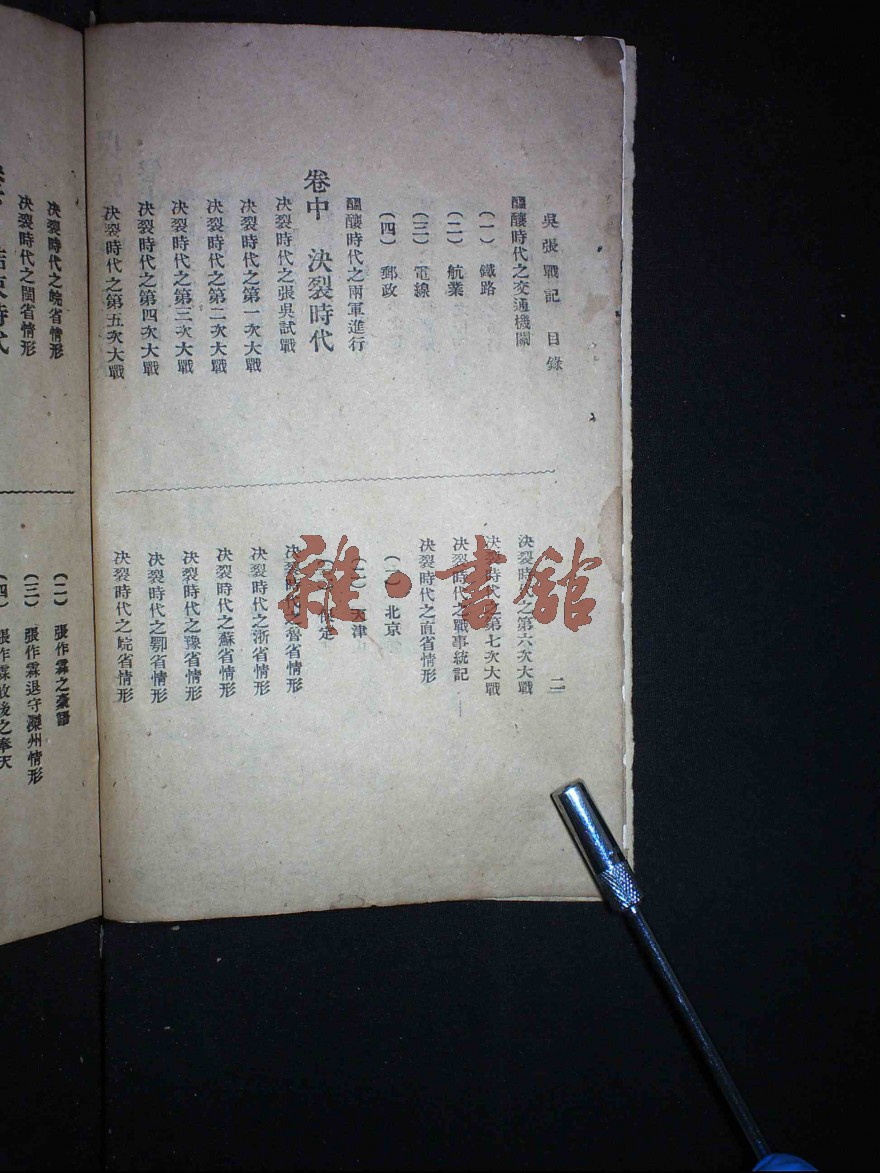 吳張戰記　目錄
二
醞釀時代之交通機關
(一)　鐵路
(二)　航業
(三)　電線
(四)　郵政
醞釀時代之兩軍進行
卷中　決裂時代
決裂時代之張吳試戰
決裂時代之第一次大戰
決裂時代之第二次大戰
決裂時代之第三次大戰
決裂時代之第四次大戰
決裂時代之第五次大戰
決裂時代之第六次大戰
決裂時代之第七次大戰
決裂時代之戰事統記
決裂時代之直省情形
北京
天津
定
決裂時代之魯省情形
決裂時代之浙省情形
決裂時代之蘇省情形
決裂時代之豫省情形
決裂時代之鄂省情形
決裂時代之皖省情形
決裂時代之皖省情形
決裂時代之閩省情形
(二)　張作霖之豪語
(三)　張作霖退守灤州情形
(四)　張作霖敗後之奉天
雜·書館